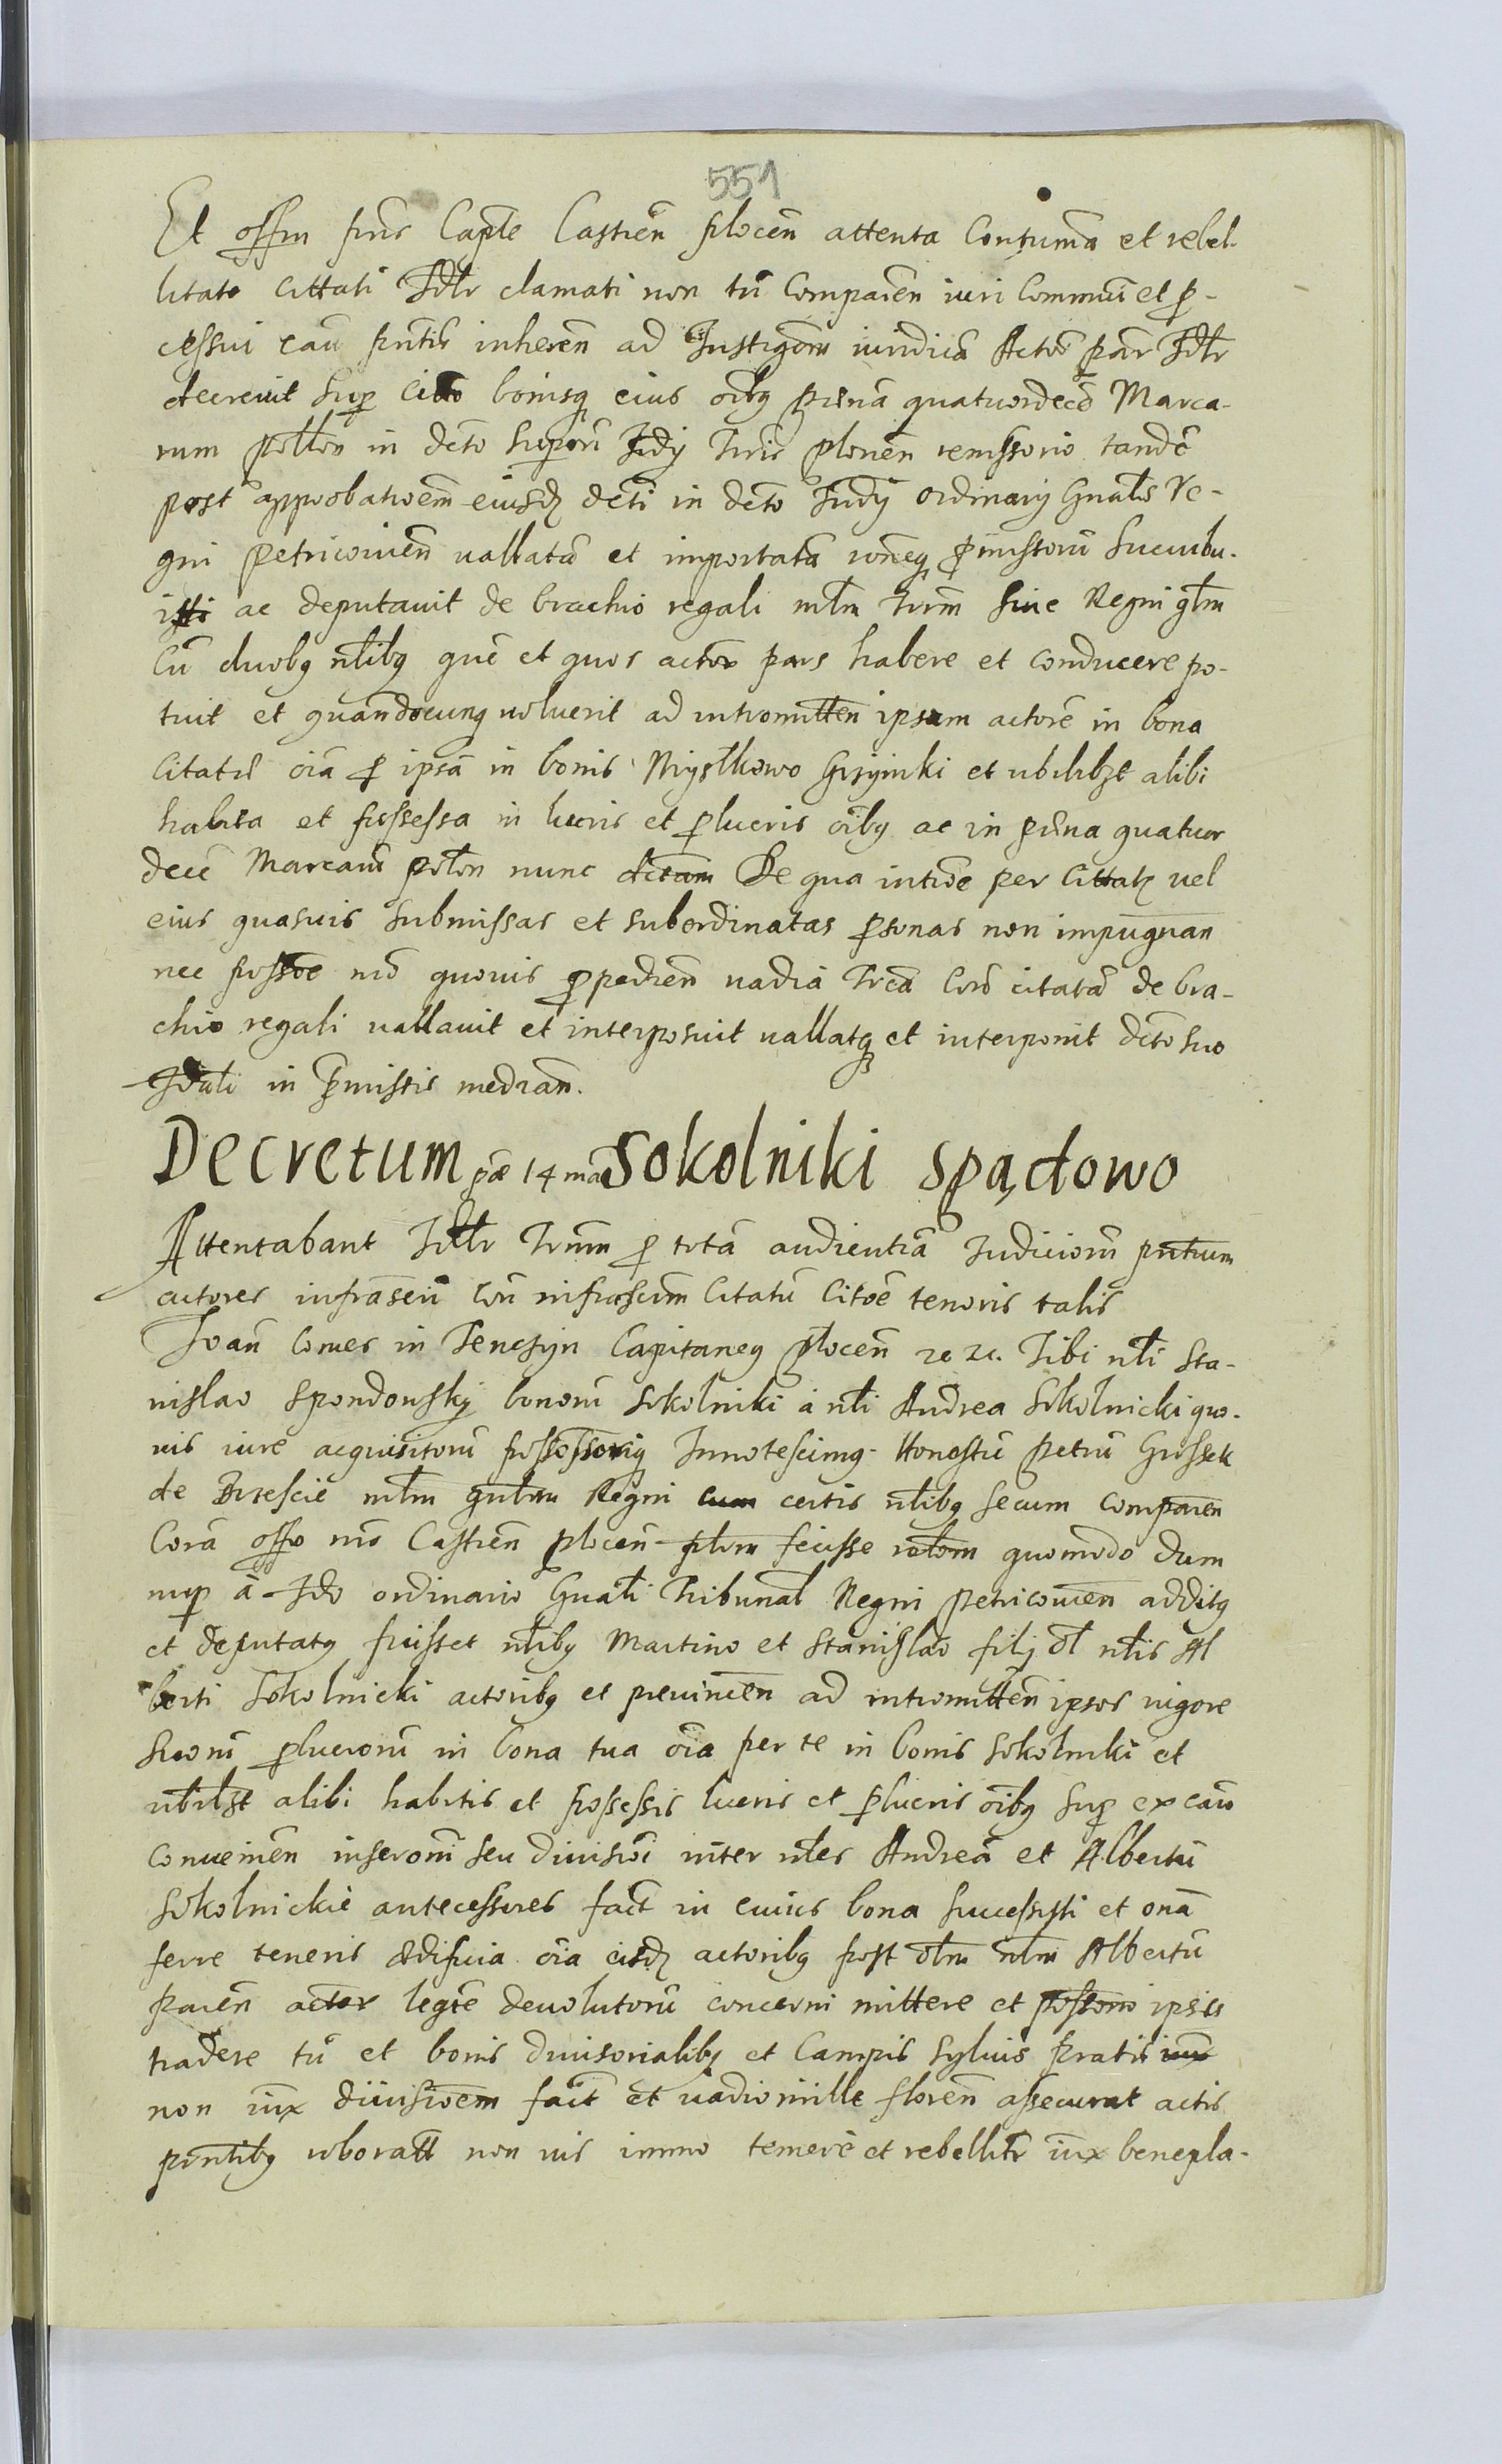 551
Et offm pns Captle Castren plocen attenta Contuma et rebel-
litate cittati Jdtr clamati non tñ Comparen iuri Commui et p-
cessui cau pntis inheren ad Instigaom iuridica Actor par Jdtr
decreuit Sup citto bonisq eius oibq pena quatuordece Marca-
rum in deto Judy Plonen remissorio tande
post approbatioem eiusdz deti in deto Judy ordinary Gnalis Re-
gni Petricouien uallata et importata pmissoru Sucubu-
ac deputauit de brachio regali mtm Trim siue Regni gtm
Cu duobq ntlibq que et quos actor pars habere et conducere po-
tuit et quandocunq uoluerit ad intromitten ipsum actore in bona
Citati oia p ipsa in bonis Mystkowo Grzyinki et ubilibzt alibi
habita et possessa in lucris et plucris oibq ac in pena quatuor
dece Marcaru polon nunc De qua intiõe per cittatz uel
eius quasuis Submissas et subordinatas psonas non impugnan
nec possõe mõ quouis ppedien uadia Trea Cora citata de bra-
chio regali uallauit et interposuit uallatq et interponit deto suo
Jdali in pmissis median.
Decretum pæ 14 ma Sokolniki Spądowo
Attentabant Jdtr Trium p tota audientia Judicioru pntium
actores infrascri Con infrascrim Citatu Citõe tenoris talis
Joan Comes in Tenczyn Capitaneq Plocen zc zc. Tibi ntli Sta-
nislao Spondowsky bonoru Sokolniki a ntli Andrea Sokolnicki quo-
uis iure acquisitoru possessoriq Innotescimq Honestu Petru Grossek
de Brescie mtm gnlem Regni cum certis ntlibq secum comparen
Cora offo nro Castren plocen fecisse rclom quomodo dum
nup a Jdo ordinario Gnali Tribunal Regni Petricouien additq
et deputatq fuisset ntlibq Martino et Stanislao filij ol ntlis Al
berti Sokolnicki actoribq et preuincen ad intromitten ipsos uigore
suoru plucroru in bona tua oia per te in bonis Sokolniki et
ubilibzt alibi habitis et possessis lucris et plucris oibq sup ex cau
conuenien inseromi seu diuisioi inter ntles Andrea et Albertu
Sokolnickie antecessores fact in cuius bona successisti et ona
ferre teneris ædificia oia eisdz actoribq post olm ntlm Albertu
Paren actor legte deuolutoru concerni mittere et possom ipsis
tradere tu et bonis diuisorialibq et Campis Syluis Pratis iux
non iux diuisioem fact et uadio mille floren assecurat actis
pntibq roboratt non uis immo temere et rebellitr iux benepla-